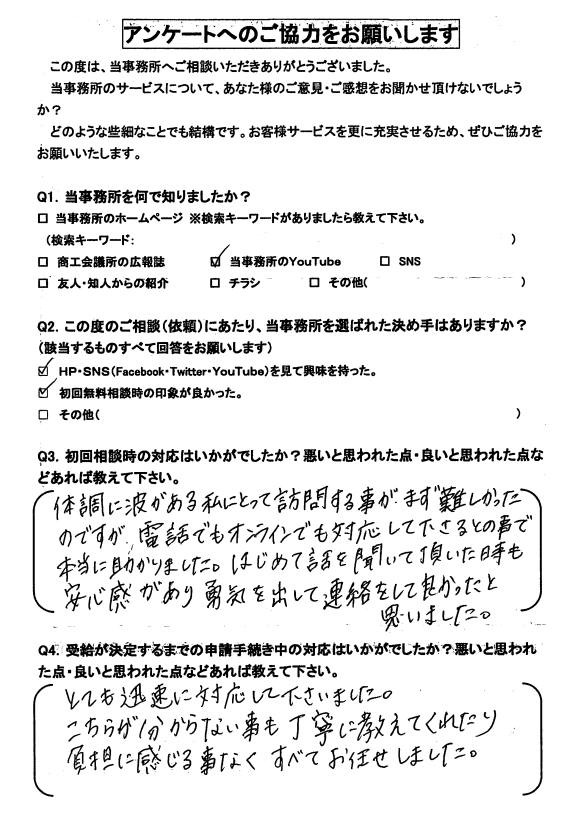 アンケートへのご協力をお願いします
この度は、当事務所へご相談いただきありがとうございました。
当事務所のサービスについて、あなた様のご意見・ご感想をお聞かせ頂けないでしょう
か？
どのような些細なことでも結構です。お客様サービスを更に充実させるため、ぜひご協力を
お願いいたします。
Q1. 当事務所を何で知りましたか？
□ 当事務所のホームページ ※検索キーワードがありましたら教えて下さい。
（検索キーワード： ）
□ 商工会議所の広報誌 ☑ 当事務所のYouTube □ SNS
□ 友人・知人からの紹介 □ チラシ □ その他( )
Q2. この度のご相談（依頼）にあたり、当事務所を選ばれた決め手はありますか？
（該当するものすべて回答をお願いします）
☑ HP・SNS（Facebook・Twitter・YouTube）を見て興味を持った。
☑ 初回無料相談時の印象が良かった。
□ その他( )
Q3. 初回相談時の対応はいかがでしたか？悪いと思われた点・良いと思われた点な
どあれば教えて下さい。
体調に波がある私にとって訪問する事が、まず難しかった
のですが、電話でもオンラインでも対応して下さるとの事で
本当に助かりました。はじめて話を聞いて頂いた時も
安心感があり勇気を出して連絡をして良かったと
思いました。
Q4. 受給が決定するまでの申請手続き中の対応はいかがでしたか？悪いと思われ
た点・良いと思われた点などあれば教えて下さい。
とても迅速に対応して下さいました。
こちらが分からない事も丁寧に教えてくれたり
負担に感じる事なくすべてお任せしました。